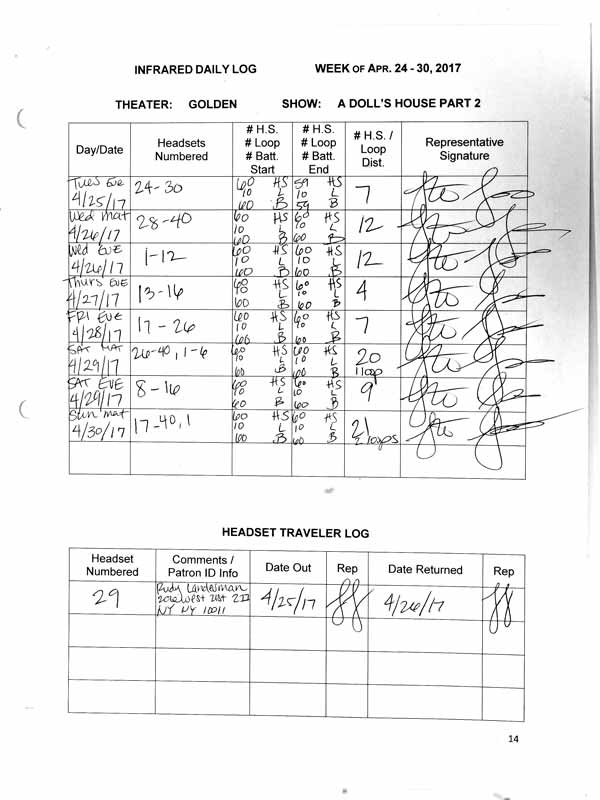 INFRARED DAILY LOG WEEK OF APR. 24 - 30, 2017
THEATER: GOLDEN SHOW: A DOLL'S HOUSE PART 2
Day/Date Headsets Numbered # H.S. # Loop # Batt. Start # H.S. # Loop # Batt. End # H.S. / Loop Dist. Representative Signature
Tues Eve 4/25/17 24-30 60 HS 10 L 60 B 59 HS 10 L 59 B 7
Wed mat 4/26/17 28-40 60 HS 10 L 60 B 60 HS 10 L 60 B 12
Wed EVE 4/26/17 1-12 60 HS 10 L 60 B 60 HS 10 L 60 B 12
Thurs EVE 4/27/17 13-16 60 HS 10 L 60 B 60 HS 10 L 60 B 4
FRI EVE 4/28/17 17-26 60 HS 10 L 60 B 60 HS 10 L 60 B 7
SAT MAT 4/29/17 26-40, 1-6 60 HS 10 L 60 B 60 HS 10 L 60 B 20 1 loop
SAT EVE 4/29/17 8-16 60 HS 10 L 60 B 60 HS 10 L 60 B 9
Sun mat 4/30/17 17-40, 1 60 HS 10 L 60 B 60 HS 10 L 60 B 21 2 loops
HEADSET TRAVELER LOG
Headset Numbered Comments / Patron ID Info Date Out Rep Date Returned Rep
29 Rudy Landesman 4/25/17 4/26/17
West 21st
NY NY 10011
14